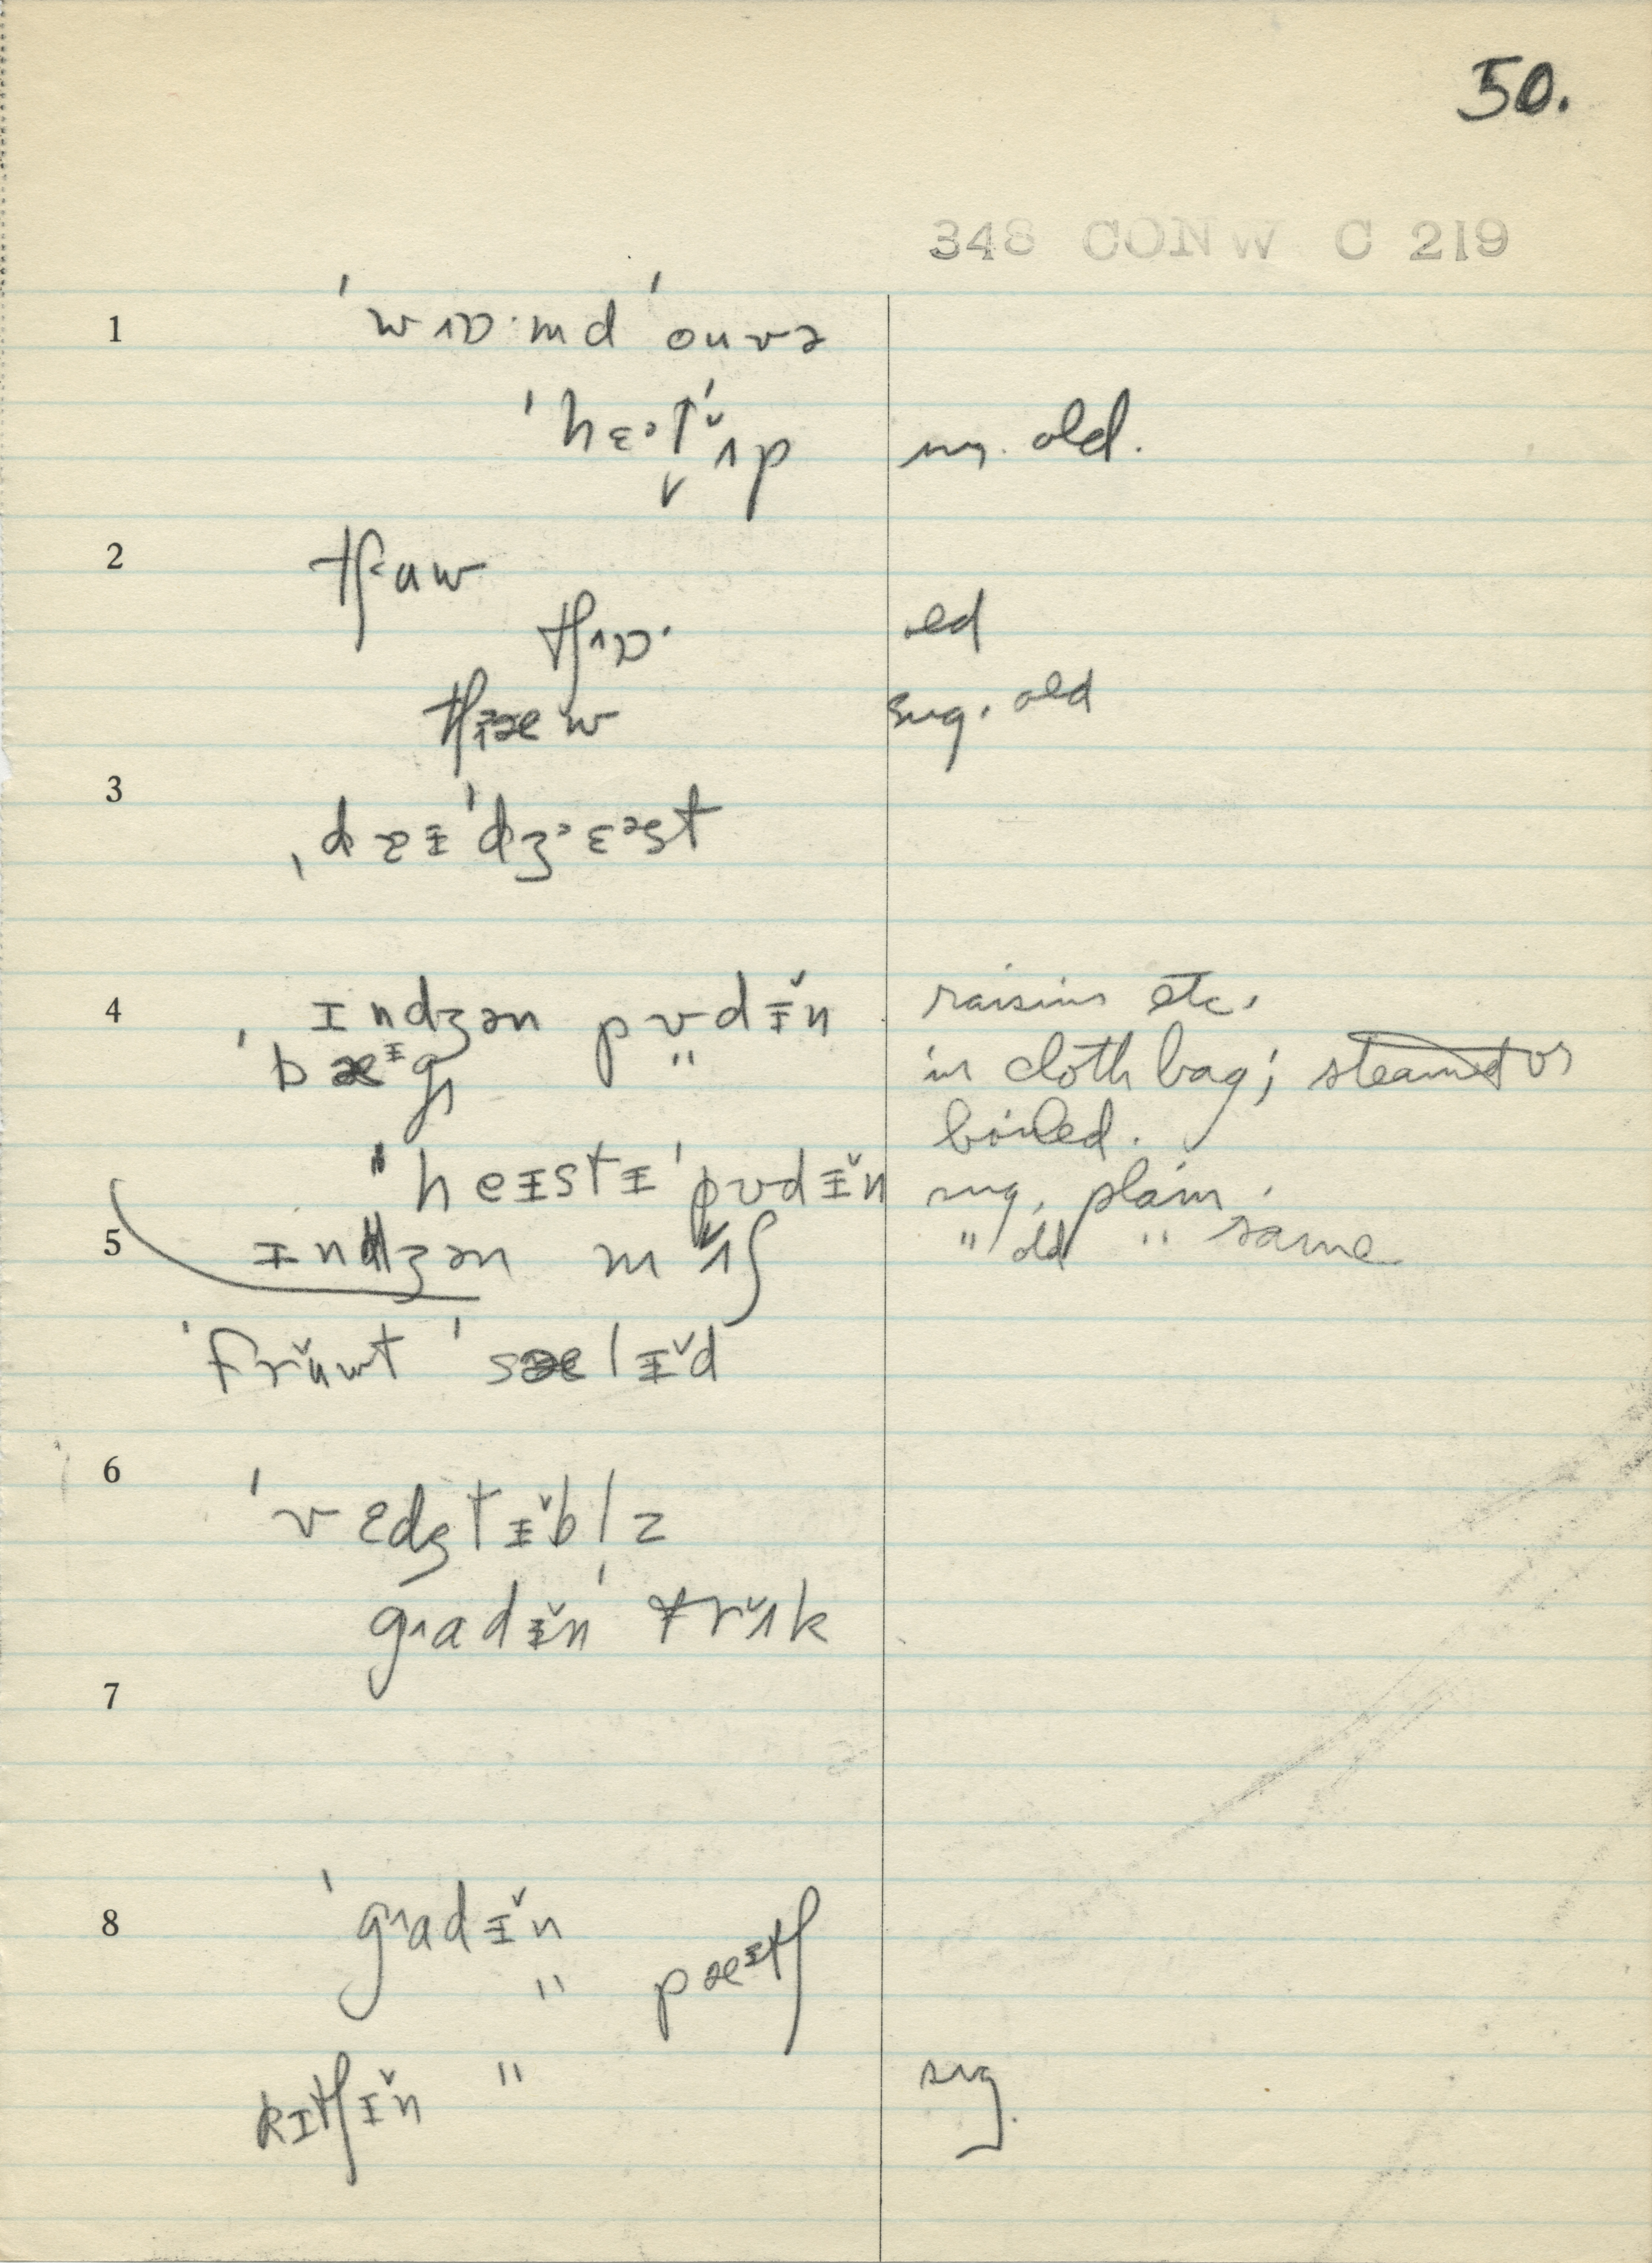 50.
348 CONW C 219
1 ˈwɒ·md ˈouvə
ˈhɛətˈʌ̌p sug. old.
2 tʃaw
tʃɒ· old
tʃæw sug. old
3 ˌdɪˈdʒɛəst
4 ˌɪndʒən pʊdɨ̌n raisins etc.
ˈbæᵻg " in cloth bag; steamed or
boiled.
ˈheɪstɪ ˈpʊdɨ̌n sug. plain.
5 ɪndʒən mʌ̌ʃ " old " same
ˈfrǔwt ˈsælɨ̌d
6 ˈvɛdʒtɨ̌blz
gɑdɨ̌n ˈtrʌ̌k
7
8 ˈgɑdɨ̌n
" pæᵻtʃ
kɪtʃɨ̌n " sug.